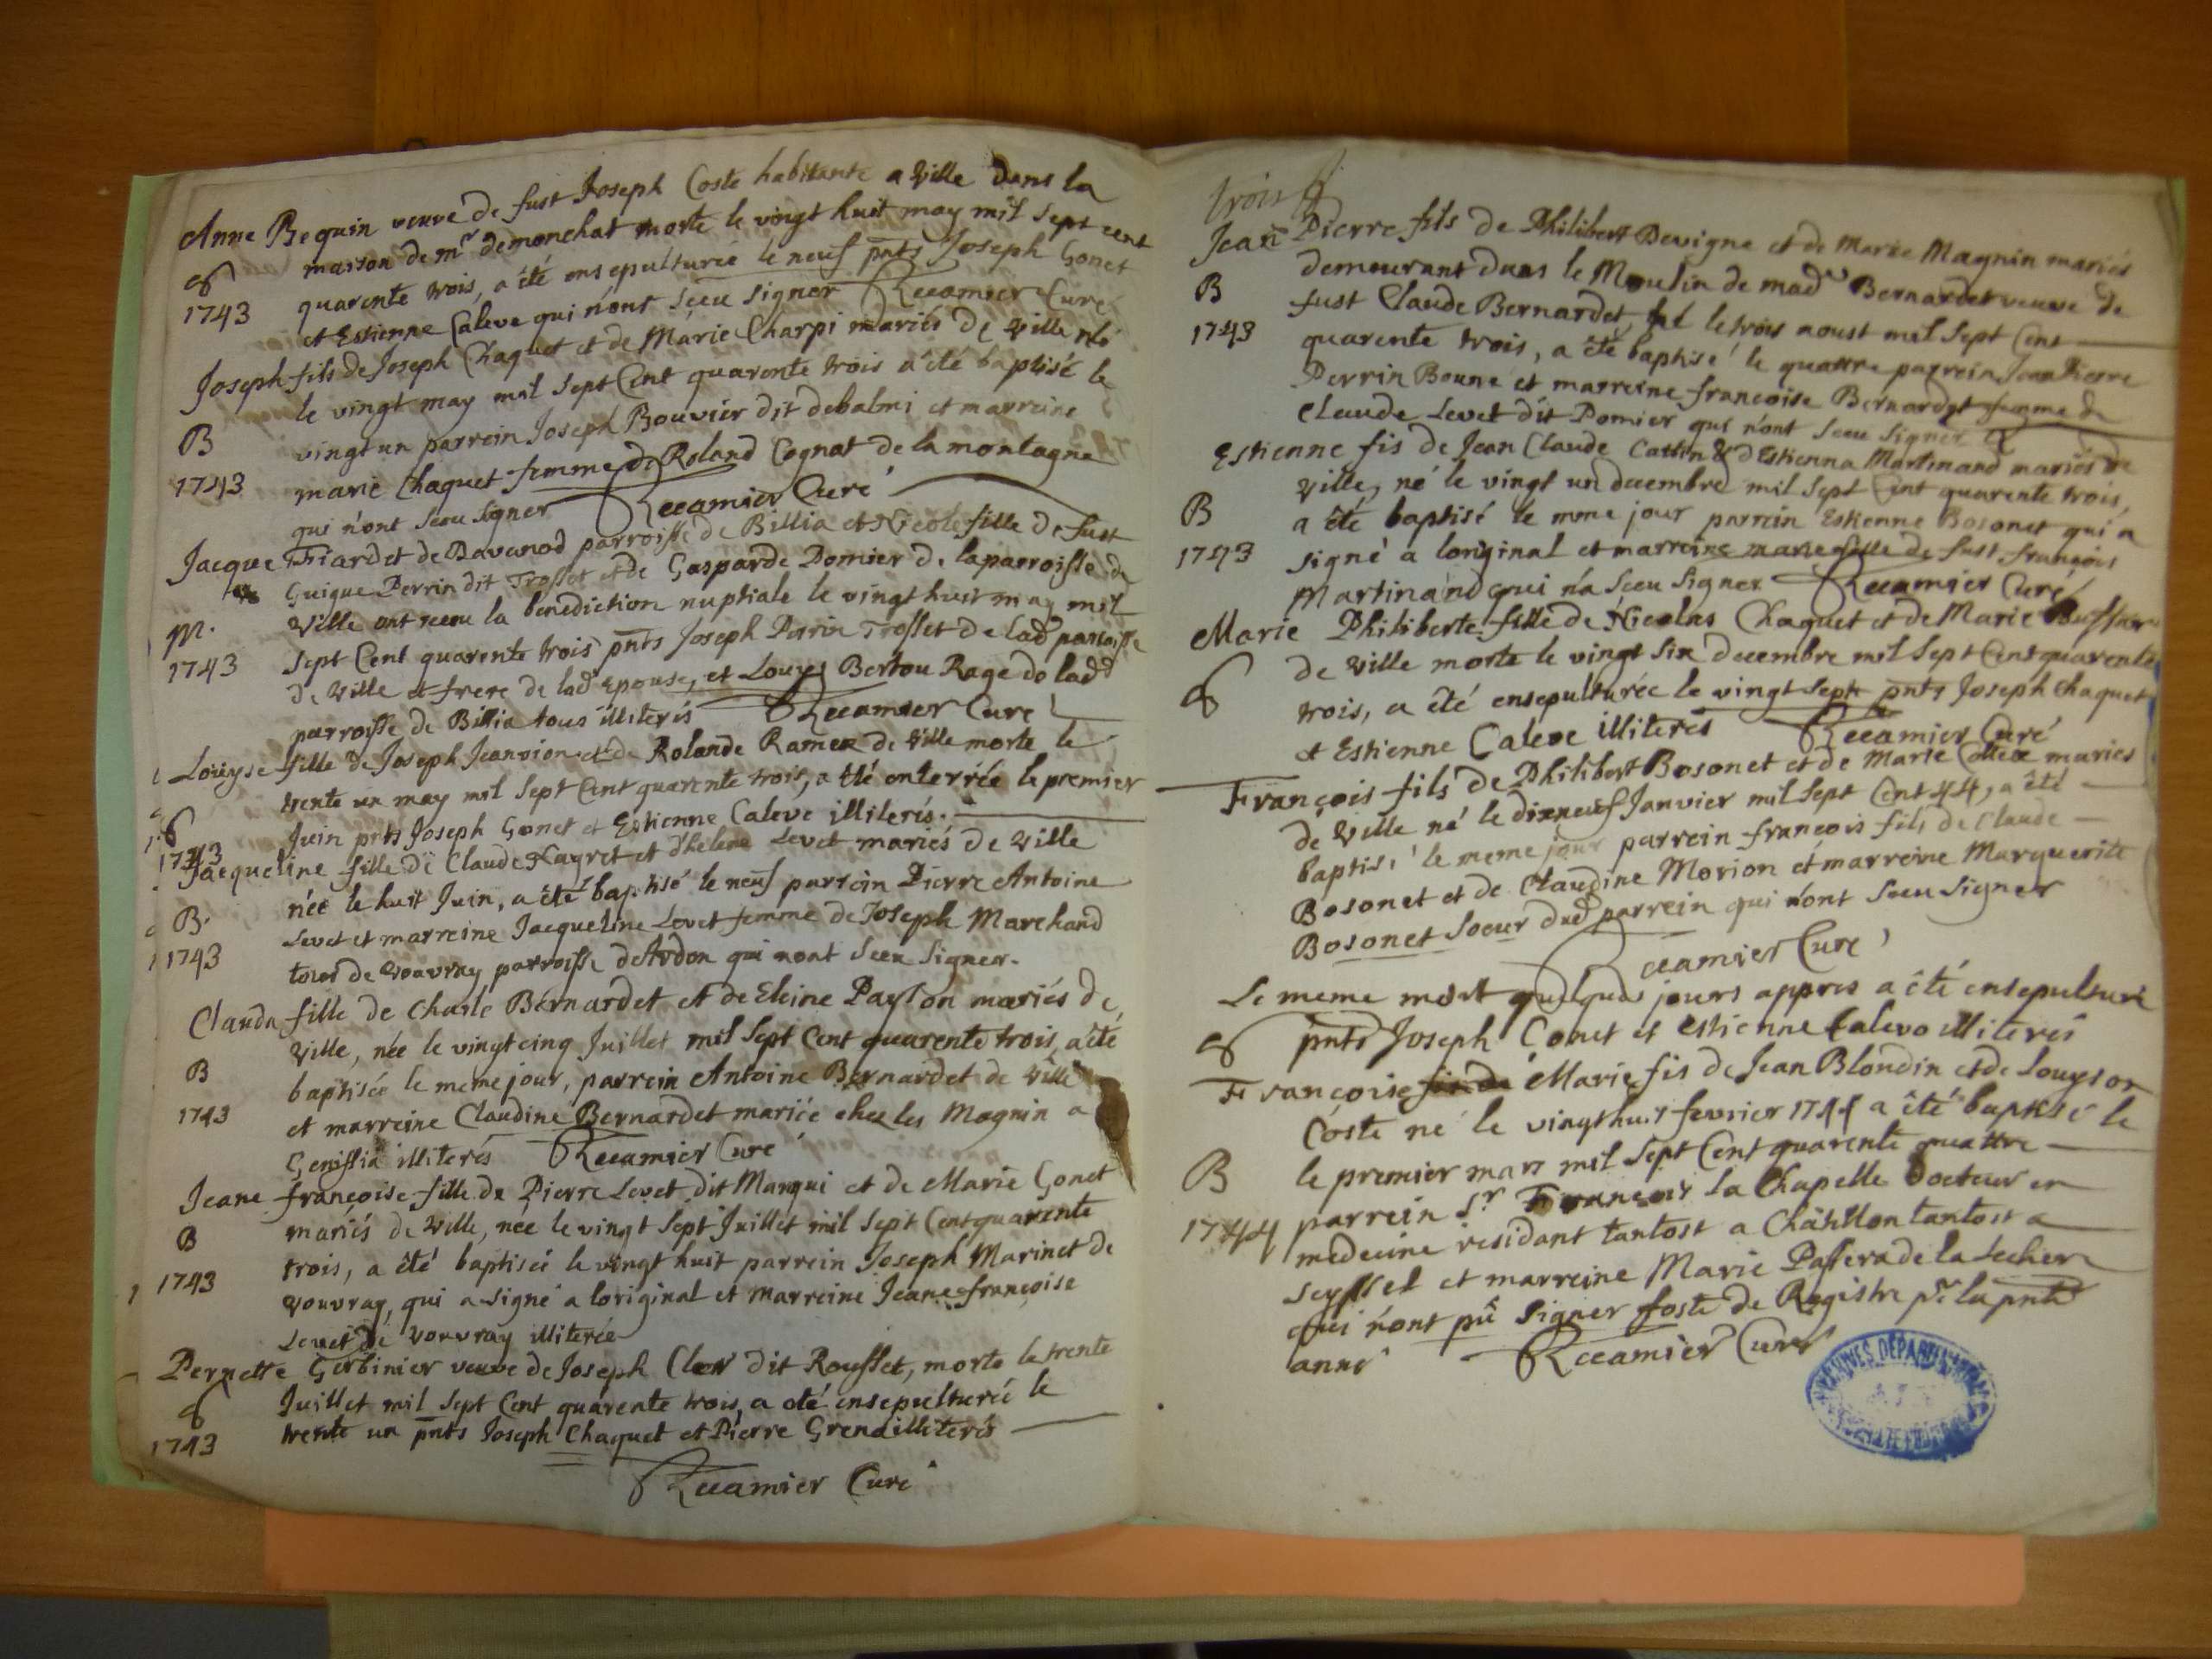 Anne Bequin veuve de fust Joseph Coste habitante a Ville dans la
maison de mr demonchat morte le vingt huit may mil sept cent
1743 quarente trois, a été ensepulturée le neuf pnts Joseph Gonet
et Estienne Caleve qui n'ont sceu signer Recamier Curé
Joseph fils de Joseph Chaquet et de Marie Charpi mariés de Ville né
le vingt may mil sept Cent quarente trois a été baptisé le
B vingt un parrein Joseph Bouvier dit debalmi et marreine
1743 marie Chaquet femme de Roland Cognat de la montagne
qui n'ont sceu signer Recamier Curé
Jacque Friardet de Bavanod parroisse de Billia et Nicole fille de fust
Guigue Perrin dit Trosset et de Gasparde Pomier de la parroisse de
M. Ville ont receu la benediction nuptiale le vingt huit may mil
1743 sept Cent quarente trois pnts Joseph Perrin Trosset de lad parroisse
de Ville et frere de lad epouse, et Louys Bertou Rage de lad
parroisse de Billia tous illiterés Recamier Curé
Louyse fille de Joseph Jeanvion et de Rolande Ramer de Ville morte le
trente un may mil sept Cent quarente trois, a été enterrée le premier
Juin pnts Joseph Gonet et Estienne Caleve illiterés.
1743
Jacqueline fille de Claude Nayret et d'helene Levet mariés de Ville
née le huit Juin, a été baptisé le neuf parrein Pierre Antoine
B. Levet et marreine Jacqueline Levet femme de Joseph Marchand
1743 tour de vouvray parroisse d'Ardon qui nont sceu signer.
Clauda fille de Charle Bernardet et de Eleine Paylon mariés de
Ville, née le vingt cinq Juillet mil sept Cent quarente trois, a été
B baptisée le meme jour, parrein Antoine Bernardet de Ville
1743 et marreine Claudine Bernardet mariée chez les Magnin a
Genissia illiterés Recamier Curé
Jeane françoise fille de Pierre Levet dit Manqui et de Marie Gonet
B mariés de Ville, née le vingt sept Juillet mil sept Cent quarente
trois, a été baptisée le vingt huit parrein Joseph Marinet de
1743 vouvray, qui a signé a loriginal et marreine Jeane françoise
Levet de vouvray illiterée
Pernette Gerbinier veuve de Joseph Cler dit Rousset, morte le trente
Juillet mil sept Cent quarente trois, a été ensepulturée le
1743 trente un pnts Joseph Chaquet et Pierre Grena illiterés
Recamier Curé
trois
Jean Pierre fils de Philibert Devigne et de Marie Magnin mariés
demeurant dans le Moulin de made Bernardet veuve de
B fust Claude Bernardet, né le trois aoust mil sept Cent
1743 quarente trois, a été baptisé le quattre parrein Jean Pierre
Perrin Boune et marreine françoise Bernardet femme de
Claude Levet dit Pomier qui n'ont sceu signer
Estienne fis de Jean Claude Cattin & d'Estienna Martinand mariés de
Ville, né le vingt un decembre mil sept Cent quarente trois,
B a été baptisé le meme jour parrein Estienne Bosonet qui a
1743 signé a loriginal et marreine marie fille de fust françois
Martinand qui n'a sceu signer Recamier Curé
Marie Philiberte fille de Nicolas Chaquet et de Marie
de Ville morte le vingt six decembre mil sept Cent quarente
trois, a été ensepulturée le vingt sept pnts Joseph Chaquet
et Estienne Caleve illiterés Recamier Curé
François fils de Philibert Bosonet et de Marie mariés
de Ville né le dixneuf Janvier mil sept Cent 44, a été
baptisé le meme jour parrein françois fils de Claude
Bosonet et de Claudine Morion et marreine Marguerite
Bosonet soeur dud parrein qui n'ont sceu signer
Recamier Curé
Le meme mort quelques jours appres a été ensepulturé
pnts Joseph Gonet et Estienne Calevo illiterés
Françoise fis de Marie fis de Jean Blondin et de Louyson
Coste né le vingt huit fevrier 1744 a été baptisé le
B le premier mars mil sept Cent quarente quattre
1744 parrein Sr François la Chapelle Docteur en
medecine residant tantost a Châtillon tantost a
Seyssel et marreine Marie Passera de la Lechere
qui n'ont pû signer foste de Registre pr la pnte
anné Recamier Curé
ARCHIVES DEPARTEMENTALES